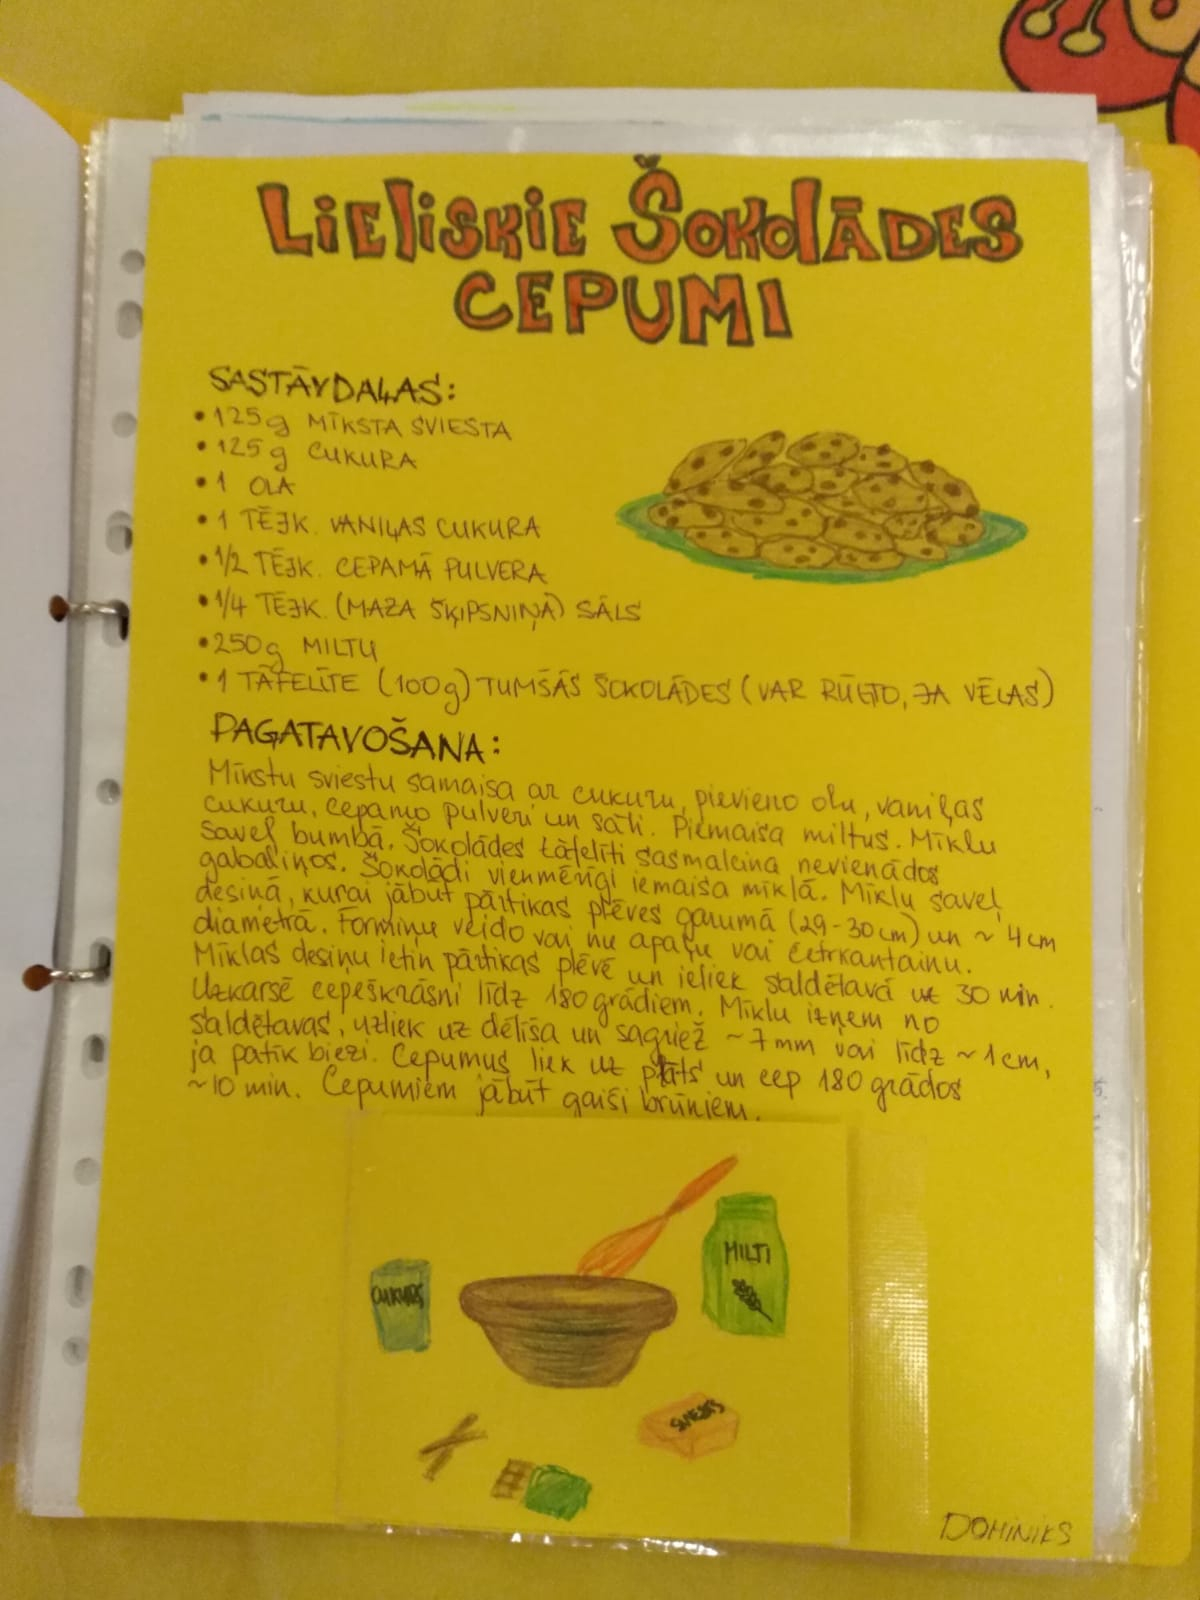 LIELISKIE ŠOKOLĀDES
CEPUMI
SASTĀVDAĻAS:
• 125g MĪKSTA SVIESTA
• 125g CUKURA
• 1 OLA
• 1 TĒJK. VANIĻAS CUKURA
• 1/2 TĒJK. CEPAMĀ PULVERA
• 1/4 TĒJK. (MAZA ŠĶIPSNIŅA) SĀLS
• 250g MILTU
• 1 TĀFELĪTE (100g) TUMŠĀS ŠOKOLĀDES (VAR RŪGTO, JA VĒLAS)
PAGATAVOŠANA:
Mīkstu sviestu samaisa ar cukuru, pievieno olu, vaniļas
cukuru, cepamo pulveri un sāli. Piemaisa miltus. Mīklu
saveļ bumbā. Šokolādes tāfelīti sasmalcina nevienādos
gabaliņos. Šokolādi vienmērīgi iemaisa mīklā. Mīklu saveļ
desiņā, kurai jābūt pārtikas plēves garumā (29-30cm) un ~ 4cm
diametrā. Formiņu veido vai nu apaļu vai četrkantainu.
Mīklas desiņu ietin pārtikas plēvē un ieliek saldētavā uz 30 min.
Uzkarsē cepeškrāsni līdz 180 grādiem. Mīklu izņem no
saldētavas, uzliek uz dēlīša un sagriež ~ 7mm vai līdz ~ 1cm,
ja patīk biezi. Cepumus liek uz plāts un cep 180 grādos
~ 10 min. Cepumiem jābūt gaiši brūniem.
MILTI
CUKURS
SVIESTS
DOMINIKS